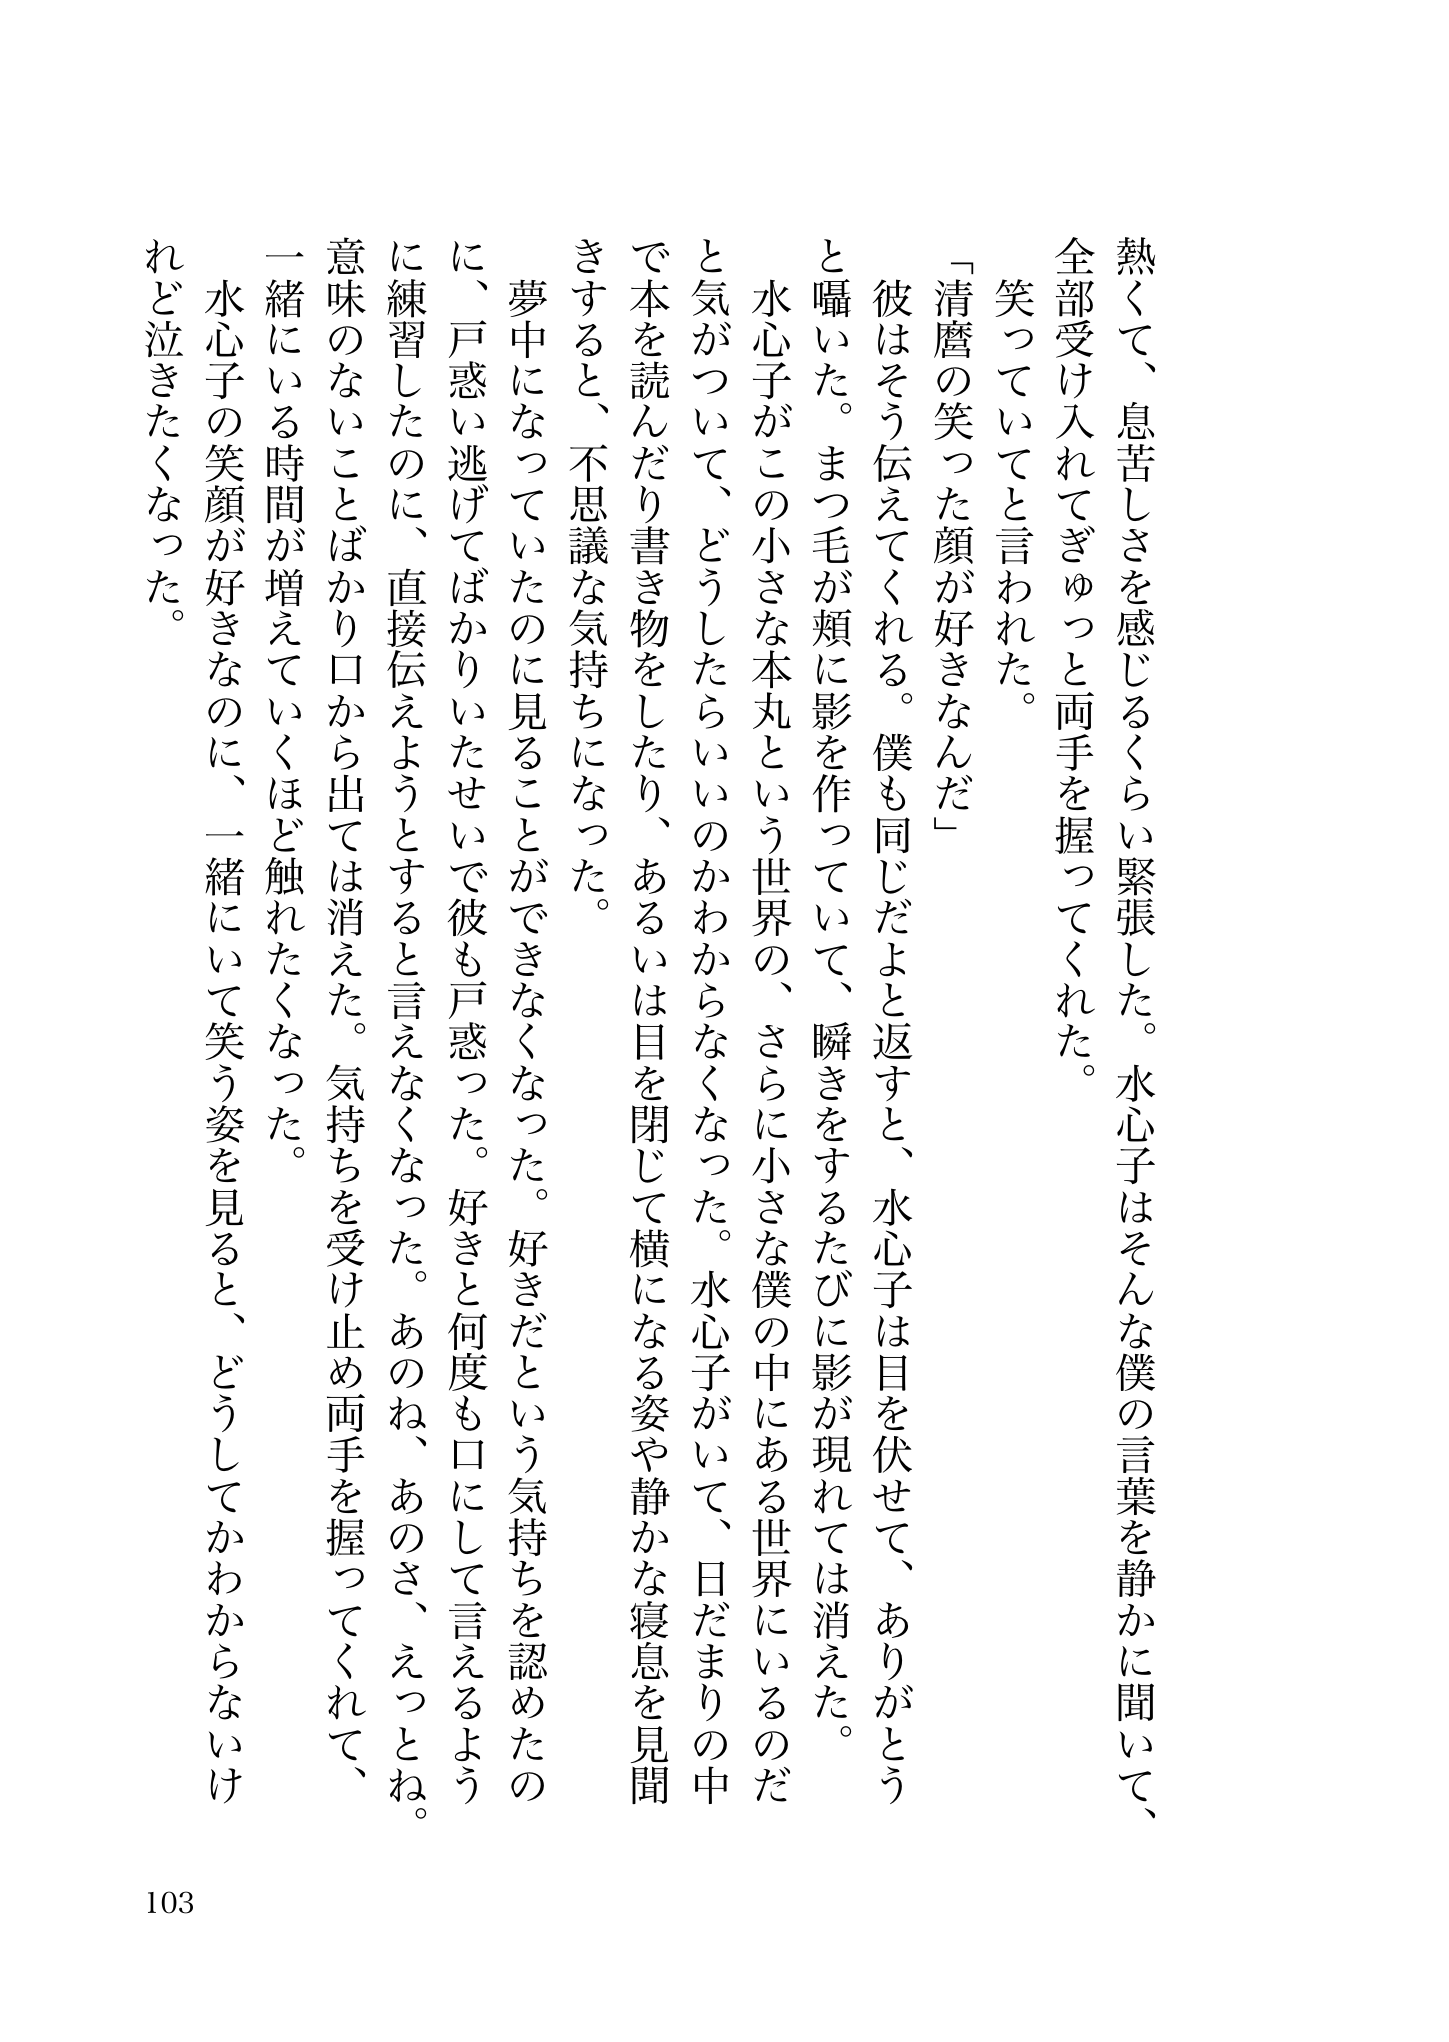 熱くて、息苦しさを感じるくらい緊張した。水心子はそんな僕の言葉を静かに聞いて、
全部受け入れてぎゅっと両手を握ってくれた。
　笑っていてと言われた。
「清麿の笑った顔が好きなんだ」
　彼はそう伝えてくれる。僕も同じだよと返すと、水心子は目を伏せて、ありがとう
と囁いた。まつ毛が頬に影を作っていて、瞬きをするたびに影が現れては消えた。
　水心子がこの小さな本丸という世界の、さらに小さな僕の中にある世界にいるのだ
と気がついて、どうしたらいいのかわからなくなった。水心子がいて、日だまりの中
で本を読んだり書き物をしたり、あるいは目を閉じて横になる姿や静かな寝息を見聞
きすると、不思議な気持ちになった。
　夢中になっていたのに見ることができなくなった。好きだという気持ちを認めたの
に、戸惑い逃げてばかりいたせいで彼も戸惑った。好きと何度も口にして言えるよう
に練習したのに、直接伝えようとすると言えなくなった。あのね、あのさ、えっとね。
意味のないことばかり口から出ては消えた。気持ちを受け止め両手を握ってくれて、
一緒にいる時間が増えていくほど触れたくなった。
　水心子の笑顔が好きなのに、一緒にいて笑う姿を見ると、どうしてかわからないけ
れど泣きたくなった。
103